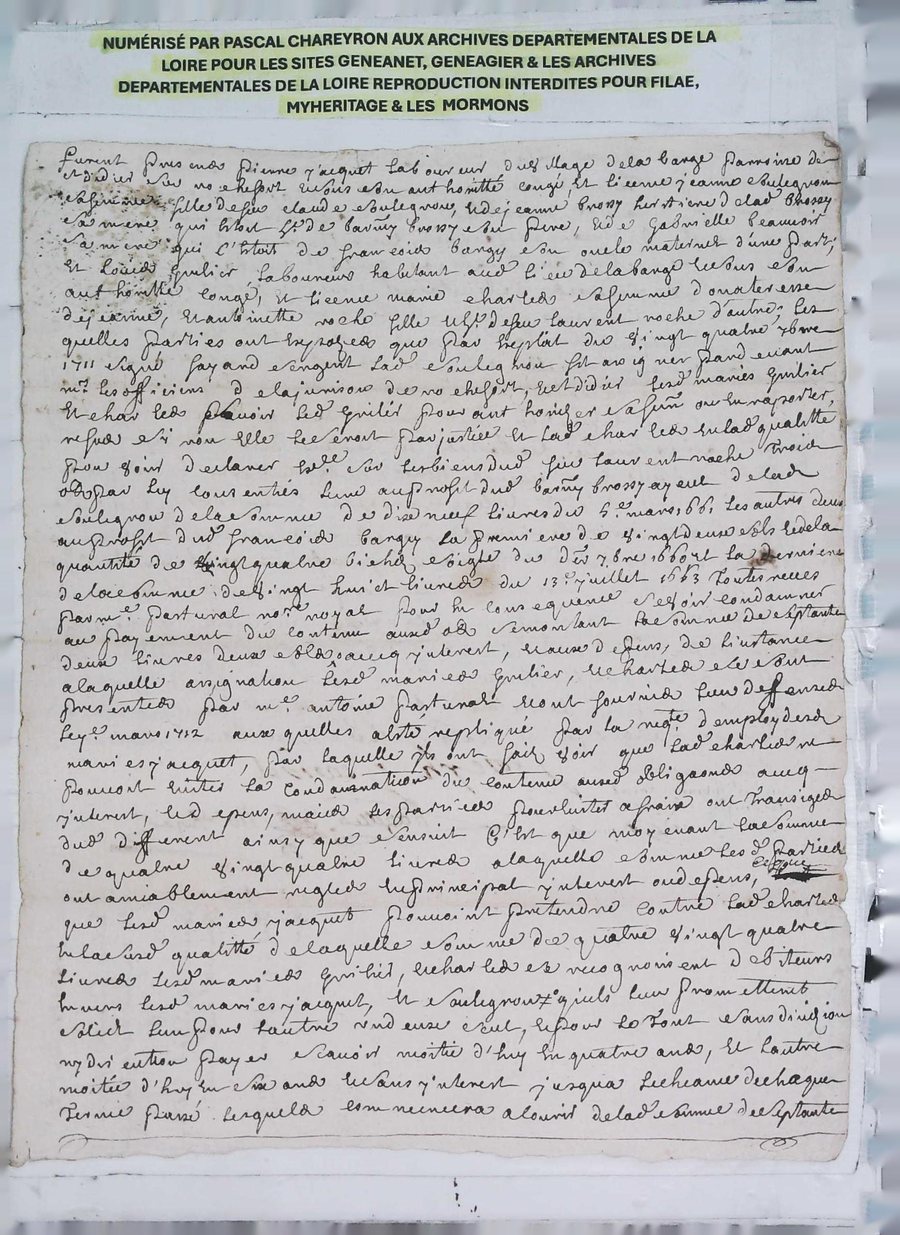 NUMÉRISÉ PAR PASCAL CHAREYRON AUX ARCHIVES DEPARTEMENTALES DE LA
LOIRE POUR LES SITES GENEANET, GENEAGIER & LES ARCHIVES
DEPARTEMENTALES DE LA LOIRE REPRODUCTION INTERDITES POUR FILAE,
MYHERITAGE & LES MORMONS
furent presens pierre jacquet laboureur du village de la barge parroisse de
st didier sur rochefort et sous son authoritté congé, et licence jeanne
sa femme fille de feu claude et de jeanne brossy heritiere de lad brossy
sa mere qui estoit de barmy brossy son pere, et de Gabrielle beauvoir
sa mere qui l'estoit de francois bargy son oncle maternel d'une part,
et Louis Grulier laboureur habitant aud lieu de la barge et sous son
authoritté congé, et licence marie charles sa femme donateresse
de jeanne, et antoinette roche fille de feu laurent roche d'autre, les
quelles parties ont que par exploit du vingt quatre 7bre
1711 signé sergent lad fit assigner pardevant
mrs les officiers de la jurisdon de rochefort, et st didier lesd maries Grulier
et charles sçavoir led Grulier pour authoriser sa fem ou en raporter,
refus si non elle le seroit par justice et lad charles en lad qualitté
pour voir declarer sur les biens dud feu laurent roche trois
par luy consenties l'une au profit dud barmy brossy ayeul de lad
de la somme de dix neuf livres du 5e mars 1661 les autres deux
au profit dud francois bargy la premiere de vingt deux sols et de la
quantité de vingt quatre bichets seigle du 7bre et la derniere
de la somme de vingt huict livres du 13e juillet 1663 toutes receues
par me pastural nore royal pour en consequence se voir condamner
au payement du contenu ausd se montant la somme de septante
deux livres deux sols avecq interest, et aux despens, de l'instance
a laquelle assignation lesd maries Grulier, et charles se sont
presentés par me antoine pastural et ont fournies leur deffenses
le mars 1712 aux quelles a esté repliqué par la reqte d'employ desd
maries jacquet, par laquelle ils ont fait voir que lad charles ne
pouvoit eviter la condamnation du contenu ausd obligaons avecq
interest, et despens, mais les parties pour eviter a frais ont transigés
dud different ainsy que s'ensuit C'est que moyenant la somme
de quatre vingt quatre livres a laquelle somme les d. parties
ont amiablement reglés en principal interest ou despens,
que lesd maries jacquet pouvoint prétendre contre lad charles
en la susd qualitté, de laquelle somme de quatre vingt quatre
livres lesd maries Grulier, et charles se recognoissent debiteurs
envers lesd maries jacquet, et qu'ils leur promettent
solid l'un pour l'autre un deux seul, et pour le tout sans division
ny discution payer sçavoir moitié d'huy en quatre ans, et l'autre
moitié d'huy en six ans et sans interest jusqua l'echeance de chaque
terme passé lesquels commencera a courir de lad somme de septante